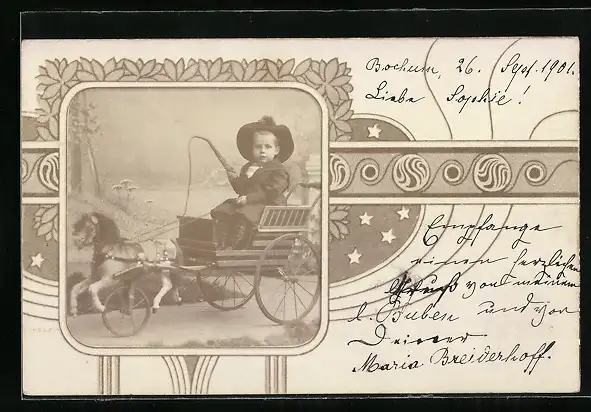 Bochum, 26. Sept. 1901.
Liebe Sophie!
Empfange
einen herzlichen
Gruß von meinem
l. Buben und von
Deiner
Maria Breiderhoff.